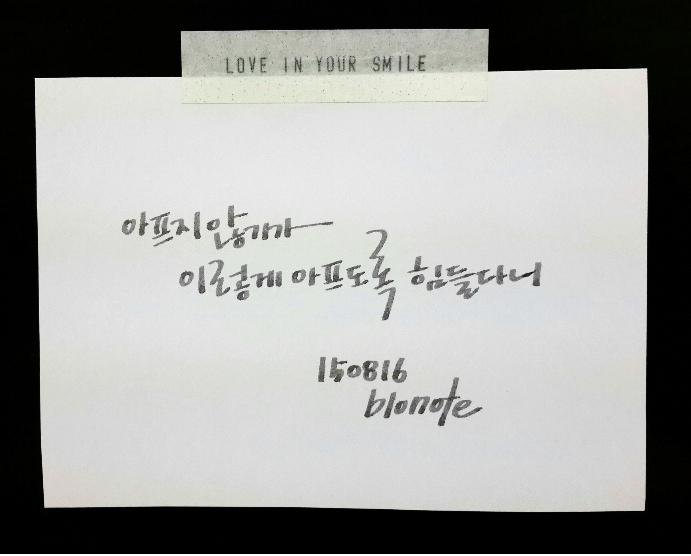 LOVE IN YOUR SMILE
아프지 않기가
이렇게 아프도록 힘들다니
150816
blonote